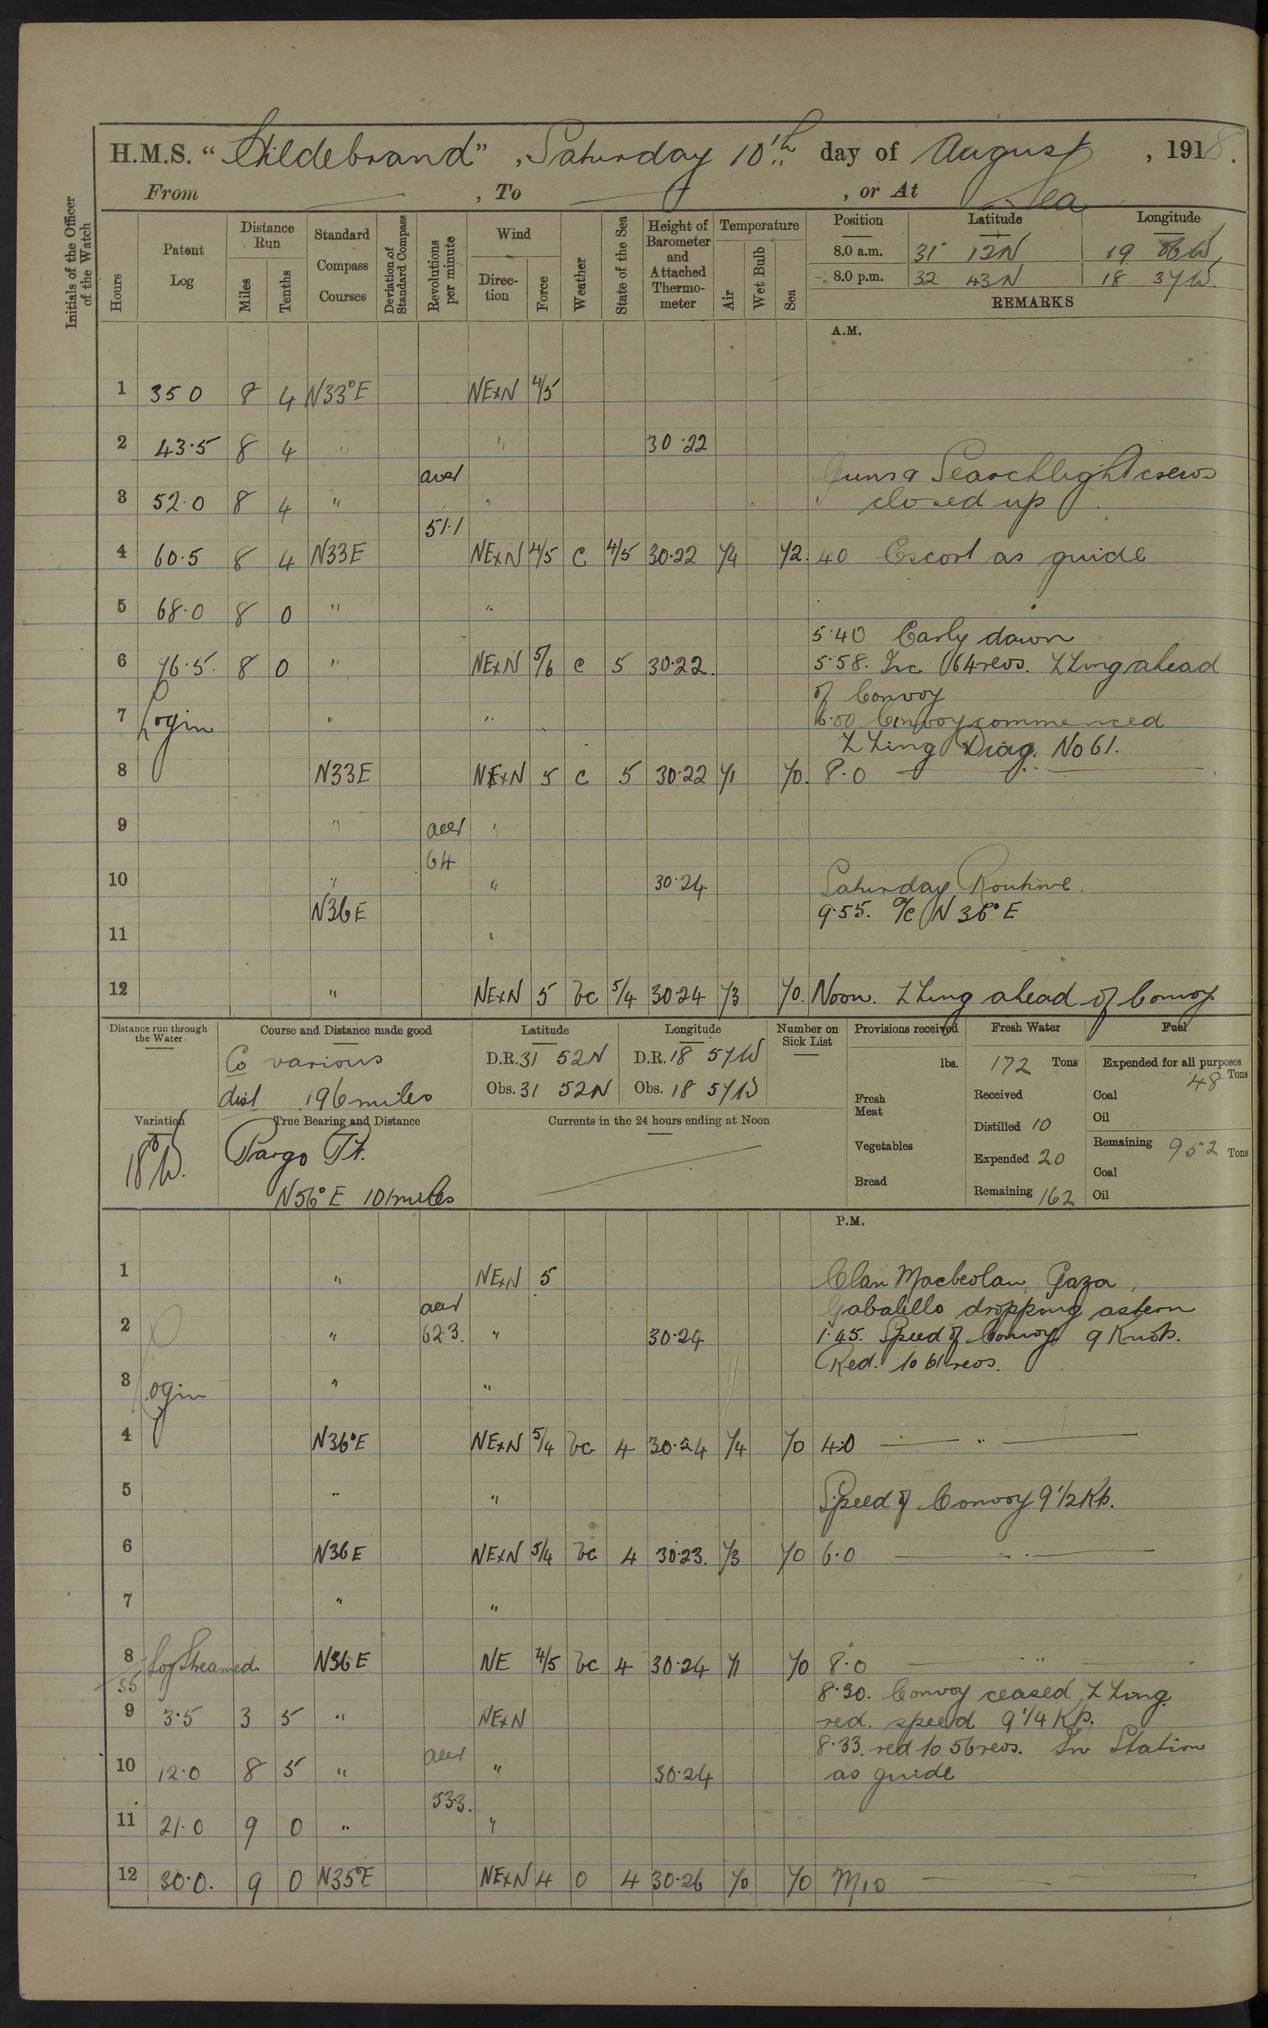 H.M.S. “Hildebrand”, Saturday 10th day of August, 1918.
From , To , or At Sea
Initials of the Officer of the Watch
Hours
Patent Log
Distance Run
Miles
Tenths
Standard Compass Courses
Deviation of Standard Compass
Revolutions per minute
Wind
Direction
Force
Weather
State of the Sea
Height of Barometer and Attached Thermometer
Temperature
Air
Wet Bulb
Sea
Position Latitude Longitude
8.0 a.m. 31 12N 19 06W
8.0 p.m. 32 43N 18 37W.
REMARKS
A.M.
1 35 0 8 4 N33°E NExN 4/5
2 43·5 8 4 " " 30·22
aver
Guns & Searchlight crews
3 52·0 8 4 " "
closed up
51.1
4 60·5 8 4 N33E NExN 4/5 C 4/5 30·22 74 72. 4·0 Escort as guide
5 68·0 8 0 " "
5·40 Early dawn
6 76·5. 8 0 " NExN 5/6 C 5 30·22. 5·58. Inc 64 revs. ZZing ahead
of Convoy
7 Log in " " 6·00 Convoy commenced
ZZing Diag. No 61.
8 N33E NExN 5 C 5 30·22 71 70. 8·0 "
9 " aver "
64
10 " " 30·24 Saturday Routine.
N36E 9·55. a/c N 36°E
11 "
12 " NExN 5 bc 5/4 30·24 73 70. Noon. ZZing ahead of Convoy
Distance run through the Water
Course and Distance made good
Co various
dist 196 miles
Latitude
D.R. 31 52N
Obs. 31 52N
Longitude
D.R. 18 57W
Obs. 18 57W
Number on Sick List
Provisions received
lbs.
Fresh Meat
Vegetables
Bread
Fresh Water
172 Tons
Received
Distilled 10
Expended 20
Remaining 162
Fuel
Expended for all purposes
48 Tons
Coal
Oil
Remaining 952 Tons
Coal
Oil
Variation
18°W.
True Bearing and Distance
Pargo Pt.
N56°E 101 miles
Currents in the 24 hours ending at Noon
P.M.
1 " NExN 5 Clan Macbeolan, Gaza,
aver dropping astern
2 " 62·3. " 30·24 1·45. Speed of Convoy 9 Knots.
Red. to 61 revs.
3 Log in " "
4 N36°E NExN 5/4 bc 4 30·24 74 70 4·0 "
5 " " Speed of Convoy 9 1/2 Kts.
6 N36E NExN 5/4 bc 4 30·23. 73 70 6·0 "
7 " "
8 Log Streamed N36E NE 4/5 bc 4 30·24 71 70 8·0 "
35
8·30. Convoy ceased ZZing.
9 3·5 3 5 " NExN red. speed 9 1/4 Kts.
aver 8·33. red to 56 revs. In Station
10 12·0 8 5 " " 30·24 as guide
53·3.
11 21·0 9 0 " "
12 30·0. 9 0 N35°E NExN 4 O 4 30·26 70 70